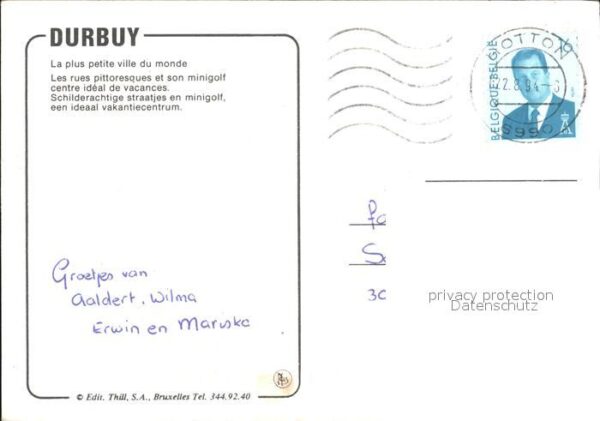 DURBUY
La plus petite ville du monde
Les rues pittoresques et son minigolf
centre idéal de vacances.
Schilderachtige straatjes en minigolf,
een ideaal vakantiecentrum.
Groetjes van
Aaldert, Wilma
Erwin en Mariska
© Edit. Thill, S.A., Bruxelles Tel. 344.92.40
HOTTON
2.8.94
5990
BELGIQUE-BELGIË
16
30
privacy protection
Datenschutz